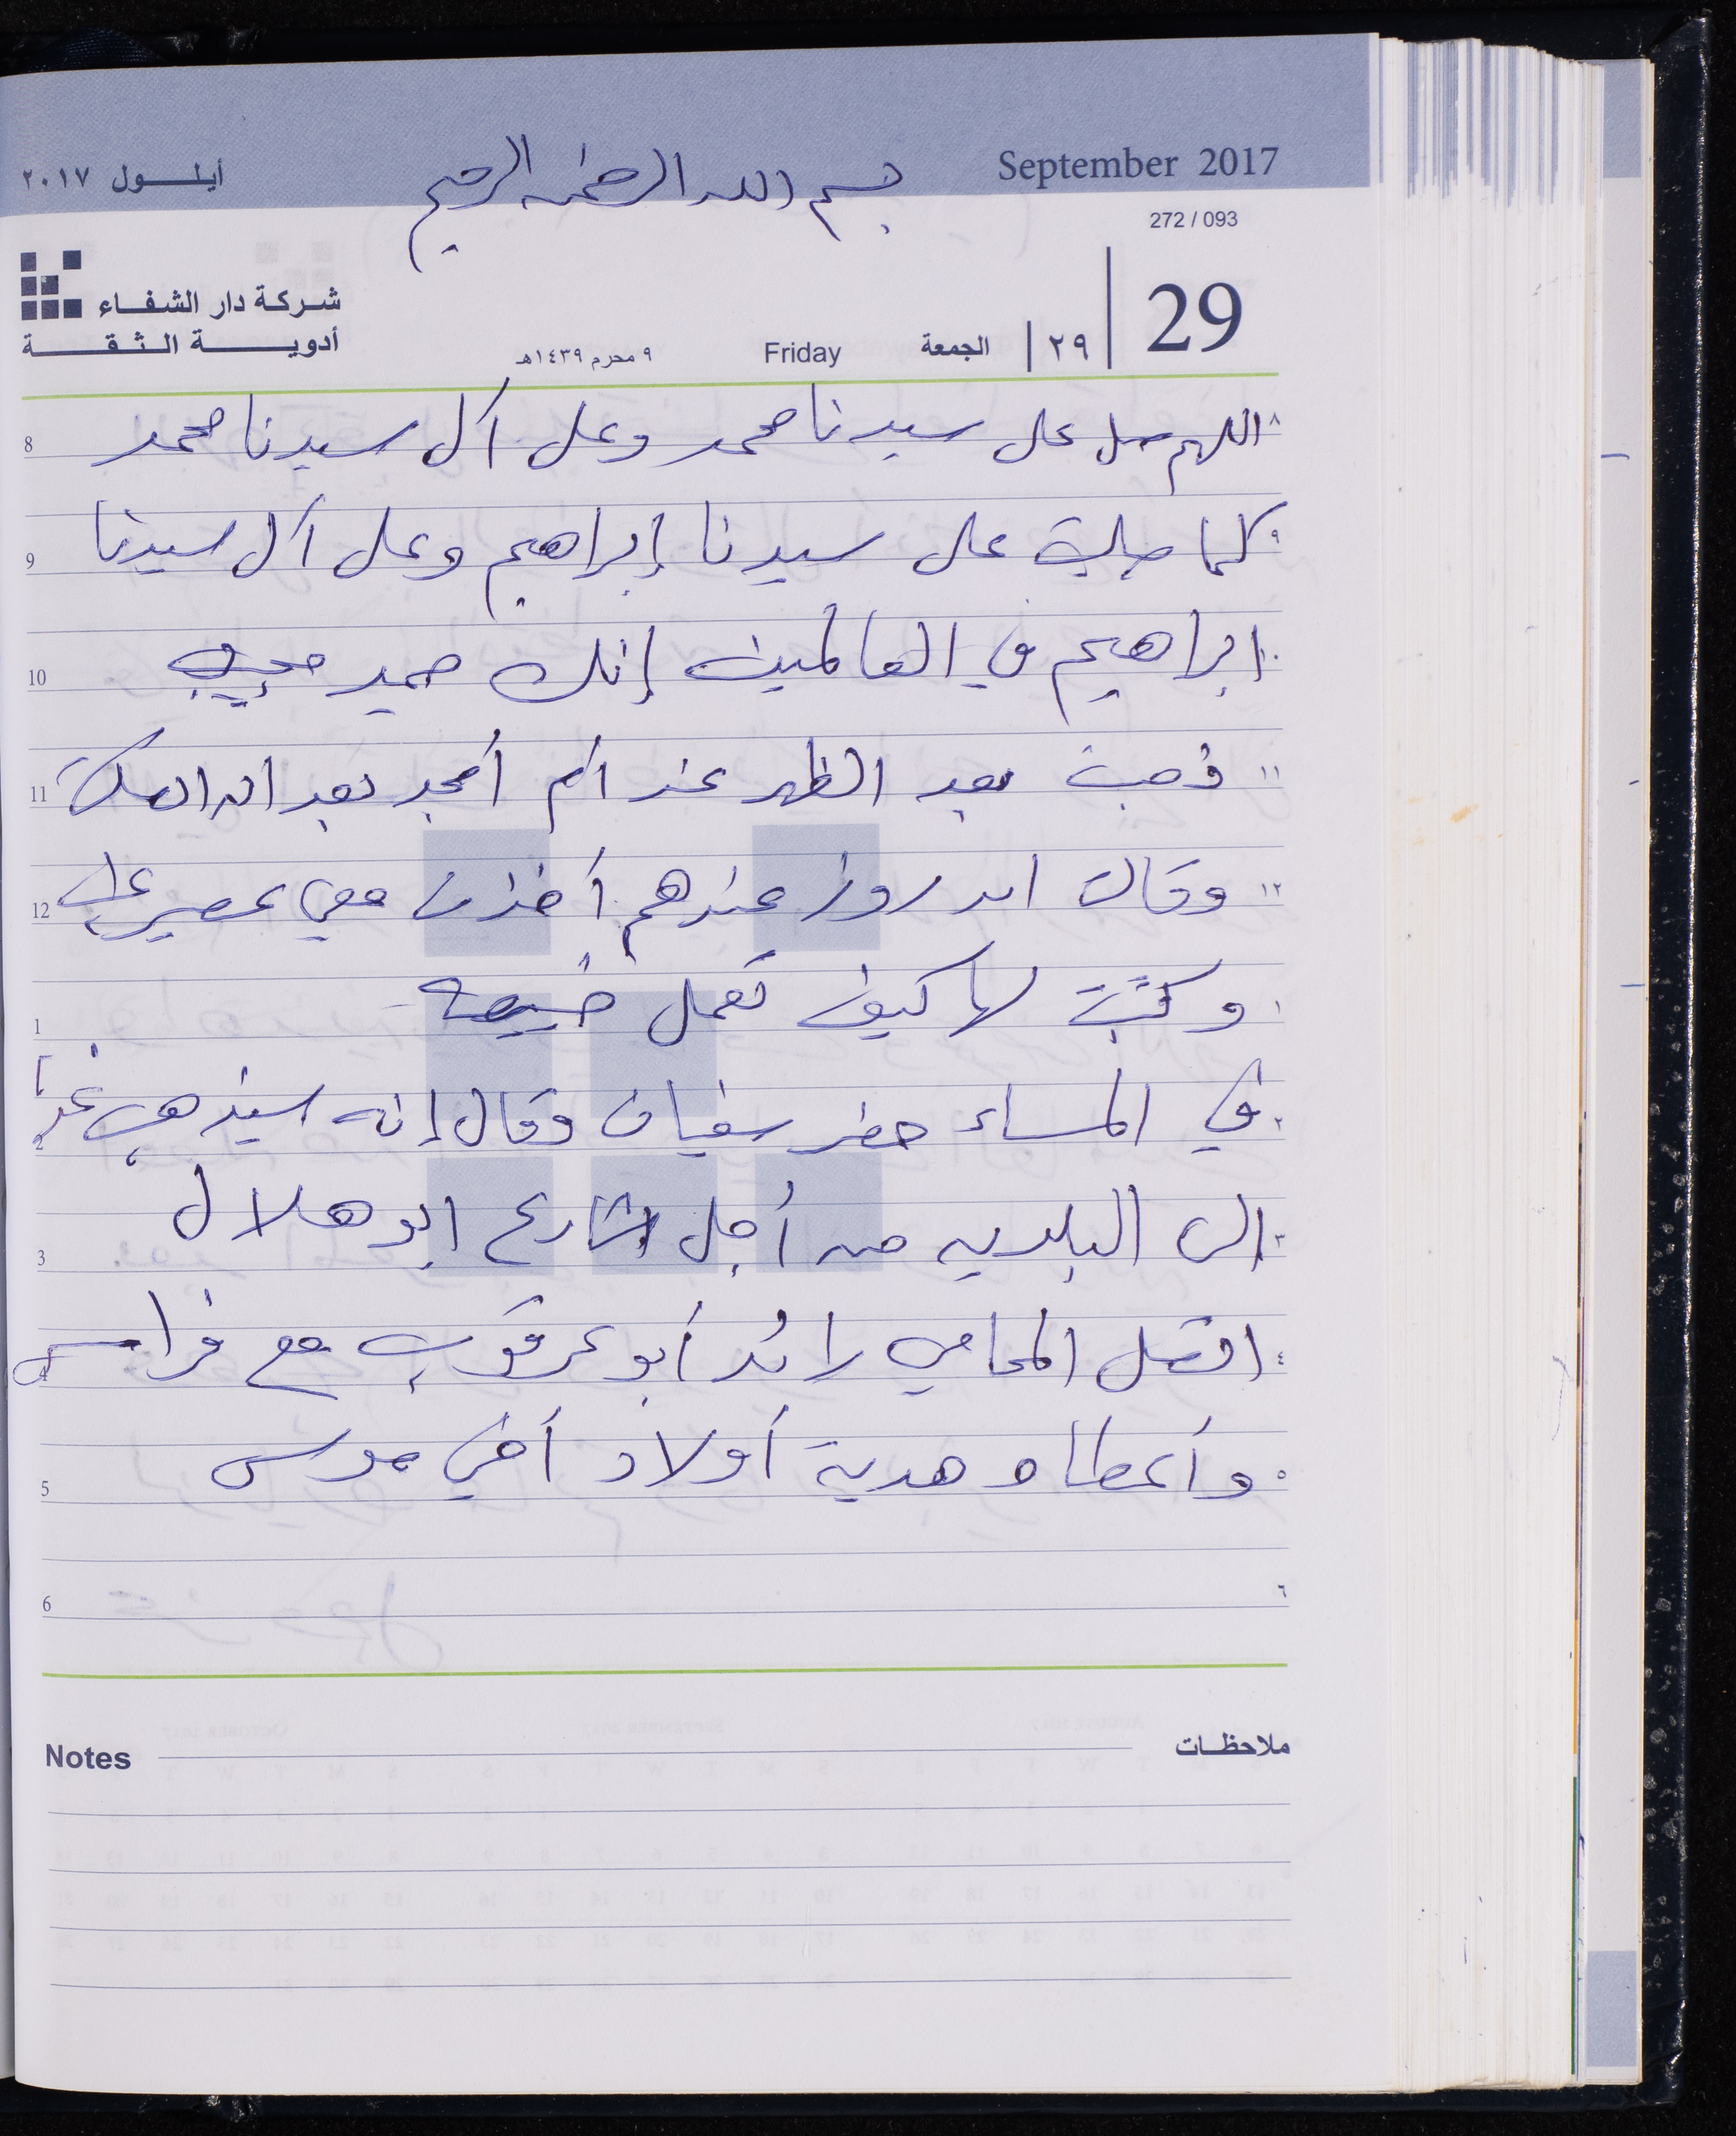 September 2017
أيلول ٢٠١٧
بسم الله الرحمن الرحيم
272 / 093
شركة دار الشفاء
أدوية الثقة
29 | ٢٩ | الجمعة Friday ٩ محرم ١٤٣٩هـ
8 اللهم صل على سيدنا محمد وعلى آل سيدنا محمد ٨
9 كما صليت على سيدنا إبراهيم وعلى آل سيدنا ٩
10 ابراهيم في العالمين إنك حميد مجيد ١٠
11 ذهبت بعد الظهر عند أم أمجد بعد ان ١١
12 وقالت عندهم أخذت معي عصير ١٢
1 وكتبت لها كيف تعمل ١
2 في المساء حضر سفيان وقال إنه سيذهب غدا ٢
3 الى البلديه من أجل شارع ابو هلال ٣
4 اتصل المحامي رائد أبو عرقوب مع فراس ٤
5 وأعطاه هدية أولاد أخي موسى ٥
6 ٦
Notes ملاحظات